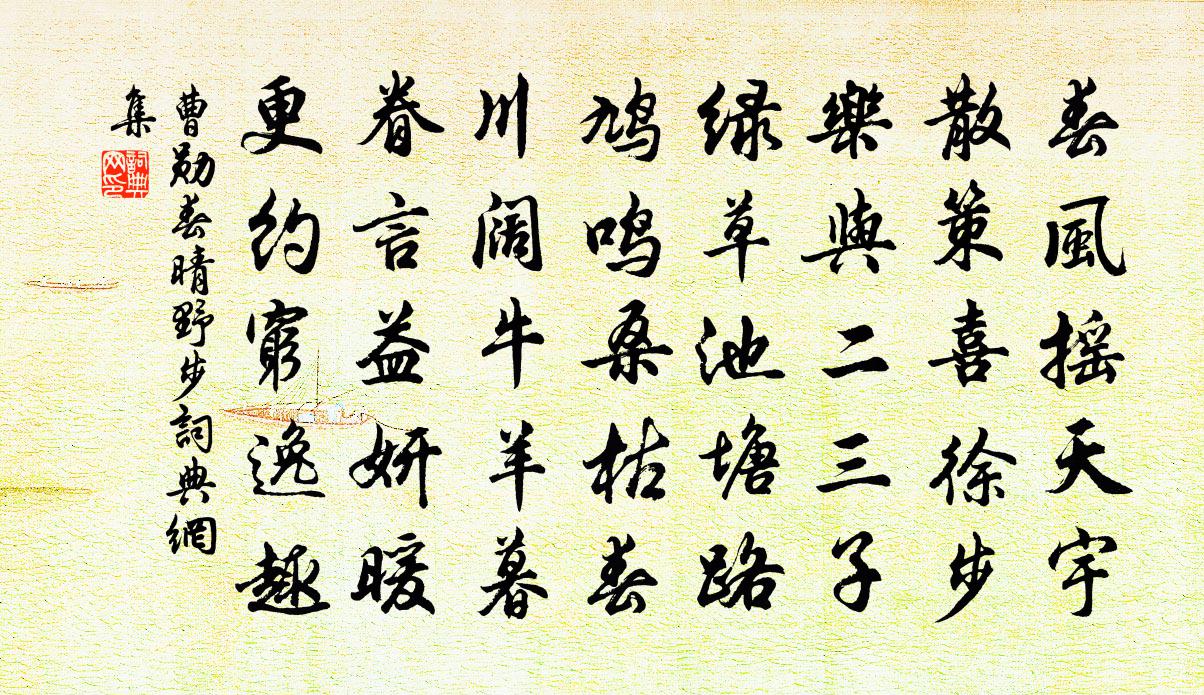 春風摇天宇
散策喜徐步
樂與二三子
緑草池塘路
鸠鸣桑枯春
川阔牛羊暮
眷言益妍暖
更约窮逸趣
曹勋春晴野步詞典網
集
詞典网印